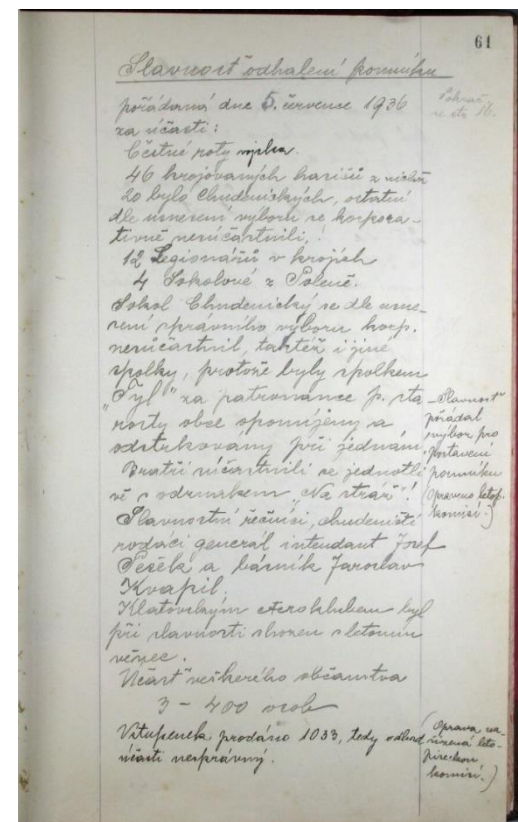 61
Slavnost odhalení pomníku
pořádaná dne 5. července 1936
Pokrač.
ze str. 16.
za účasti:
Čestné roty vojska.
46 krojovaných hasičů z nichž
20 bylo Chudenických, ostatní
dle usnesení výboru se korpora-
tivně nesúčastnili,!
12 Legionářů v krojích
4 Sokolové z Poleně.
Sokol Chudenický se dle usne-
sení správního výboru korp.
nesúčastnil, taktéž i jiné
spolky, protože byly spolkem
"Tyl" za patronance p. sta
rosty obce opomíjeny a
odstrkovány při jednání.
Bratři súčastnili se jednotli
vě s odznakem "Na stráž"!
Slavnostní řečníci, chudeničtí
rodáci generál intendant Josef
Pešek a básník Jaroslav
Kvapil.
Klatovským Aeroklubem byl
při slavnosti shozen s letounu
věnec.
Účast veškerého občanstva
3 - 400 osob
Vstupenek prodáno 1033, tedy odhad
účasti nesprávný.
- Slavnost
pořádal
výbor pro
postavení
pomníku
(Opraveno letop.
komisí.)
(Oprava na-
řízená leto-
piseckou
komisí.)